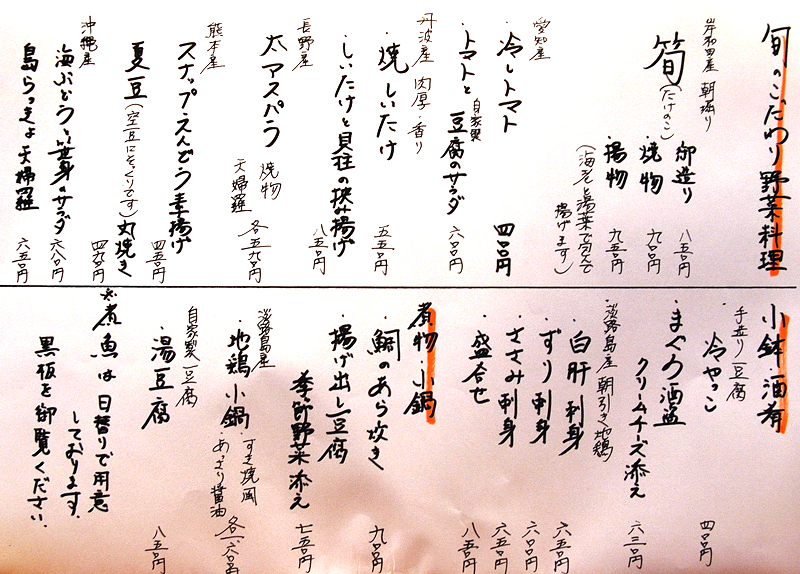 旬のこだわり野菜料理
岸和田産 朝掘り
筍(たけのこ)
・御造り 八五〇円
・焼物 九〇〇円
・揚物 九五〇円
(海老と湯葉で包んで
揚げます)
愛知産
・冷しトマト 四〇〇円
・トマトと自家製豆腐のサラダ 六〇〇円
丹波産 肉厚・香り
・焼しいたけ 五五〇円
・しいたけと貝柱の挟み揚げ 八五〇円
長野産
太アスパラ 焼物
天婦羅 各五九〇円
熊本産
スナップえんどう素揚げ 四五〇円
夏豆(空豆にそっくりです)丸焼き 四九〇円
沖縄産
海ぶどうと若芽のサラダ 六八〇円
島らっきょ天婦羅 六五〇円
小鉢・酒肴
手造り豆腐
・冷やっこ 四〇〇円
・まぐろ酒盗
クリームチーズ添え 六三〇円
淡路島産 朝引き地鶏
・白肝刺身 六五〇円
・ずり刺身 六〇〇円
・ささみ刺身 六五〇円
・盛合せ 八五〇円
煮物・小鍋
・鯛のあら炊き 九〇〇円
・揚げ出し豆腐
季節野菜添え 七五〇円
淡路島産
・地鶏小鍋 ・すき焼風
・あっさり醤油 各一六〇〇円
自家製豆腐
・湯豆腐 八五〇円
※煮魚は日替りで用意
しております。
黒板を御覧ください。